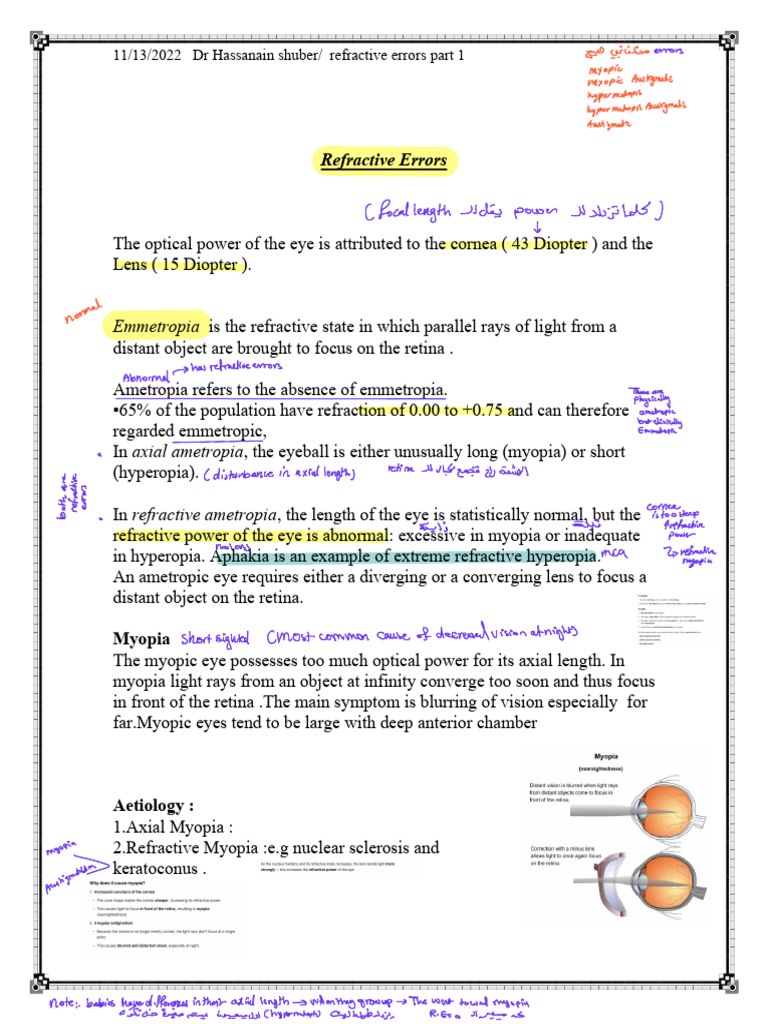 11/13/2022 Dr Hassanain shuber/ refractive errors part 1
errors
myopic
myopic Austigmatic
hypermetropic
hypermetropic Austigmatic
Austigmatic
Refractive Errors
(كلما تزداد ال power يقل ال focal length)
The optical power of the eye is attributed to the cornea ( 43 Diopter ) and the
Lens ( 15 Diopter ).
normal
Emmetropia is the refractive state in which parallel rays of light from a
distant object are brought to focus on the retina .
Abnormal → has refractive errors
Ametropia refers to the absence of emmetropia.
▪65% of the population have refraction of 0.00 to +0.75 and can therefore
regarded emmetropic,
These are
physically
ametropic
but clinically
Emmetropic
In axial ametropia, the eyeball is either unusually long (myopia) or short
(hyperopia). (disturbance in axial length)
retina
both are
refractive
errors
In refractive ametropia, the length of the eye is statistically normal, but the
refractive power of the eye is abnormal: excessive in myopia or inadequate
in hyperopia. Aphakia is an example of extreme refractive hyperopia.
no lens
mcq
cornea
is too steep
↑refractive
power
↳ refractive
myopia
An ametropic eye requires either a diverging or a converging lens to focus a
distant object on the retina.
Myopia short sighted (most common cause of decreased vision at nights)
The myopic eye possesses too much optical power for its axial length. In
myopia light rays from an object at infinity converge too soon and thus focus
in front of the retina .The main symptom is blurring of vision especially for
far.Myopic eyes tend to be large with deep anterior chamber
Myopia
(nearsightedness)
Distant vision is blurred when light rays
from distant objects come to focus in
front of the retina.
Correction with a minus lens
allows light to once again focus
on the retina.
Aetiology :
1.Axial Myopia :
2.Refractive Myopia :e.g nuclear sclerosis and
keratoconus .
myopia
Austigmatism
As the nucleus hardens and its refractive index increases, the lens bends light more
strongly — this increases the refractive power of the eye
Why does it cause myopia?
1. Increased curvature of the cornea
• The cone shape makes the cornea steeper, increasing its refractive power.
• This causes light to focus in front of the retina, resulting in myopia
(nearsightedness).
2. Irregular astigmatism
• Because the cornea is no longer evenly curved, the light rays don't focus at a single
point.
• This causes blurred and distorted vision, especially at night.
Note:. babies have differences in their axial length → when they grow up → They went toward myopia